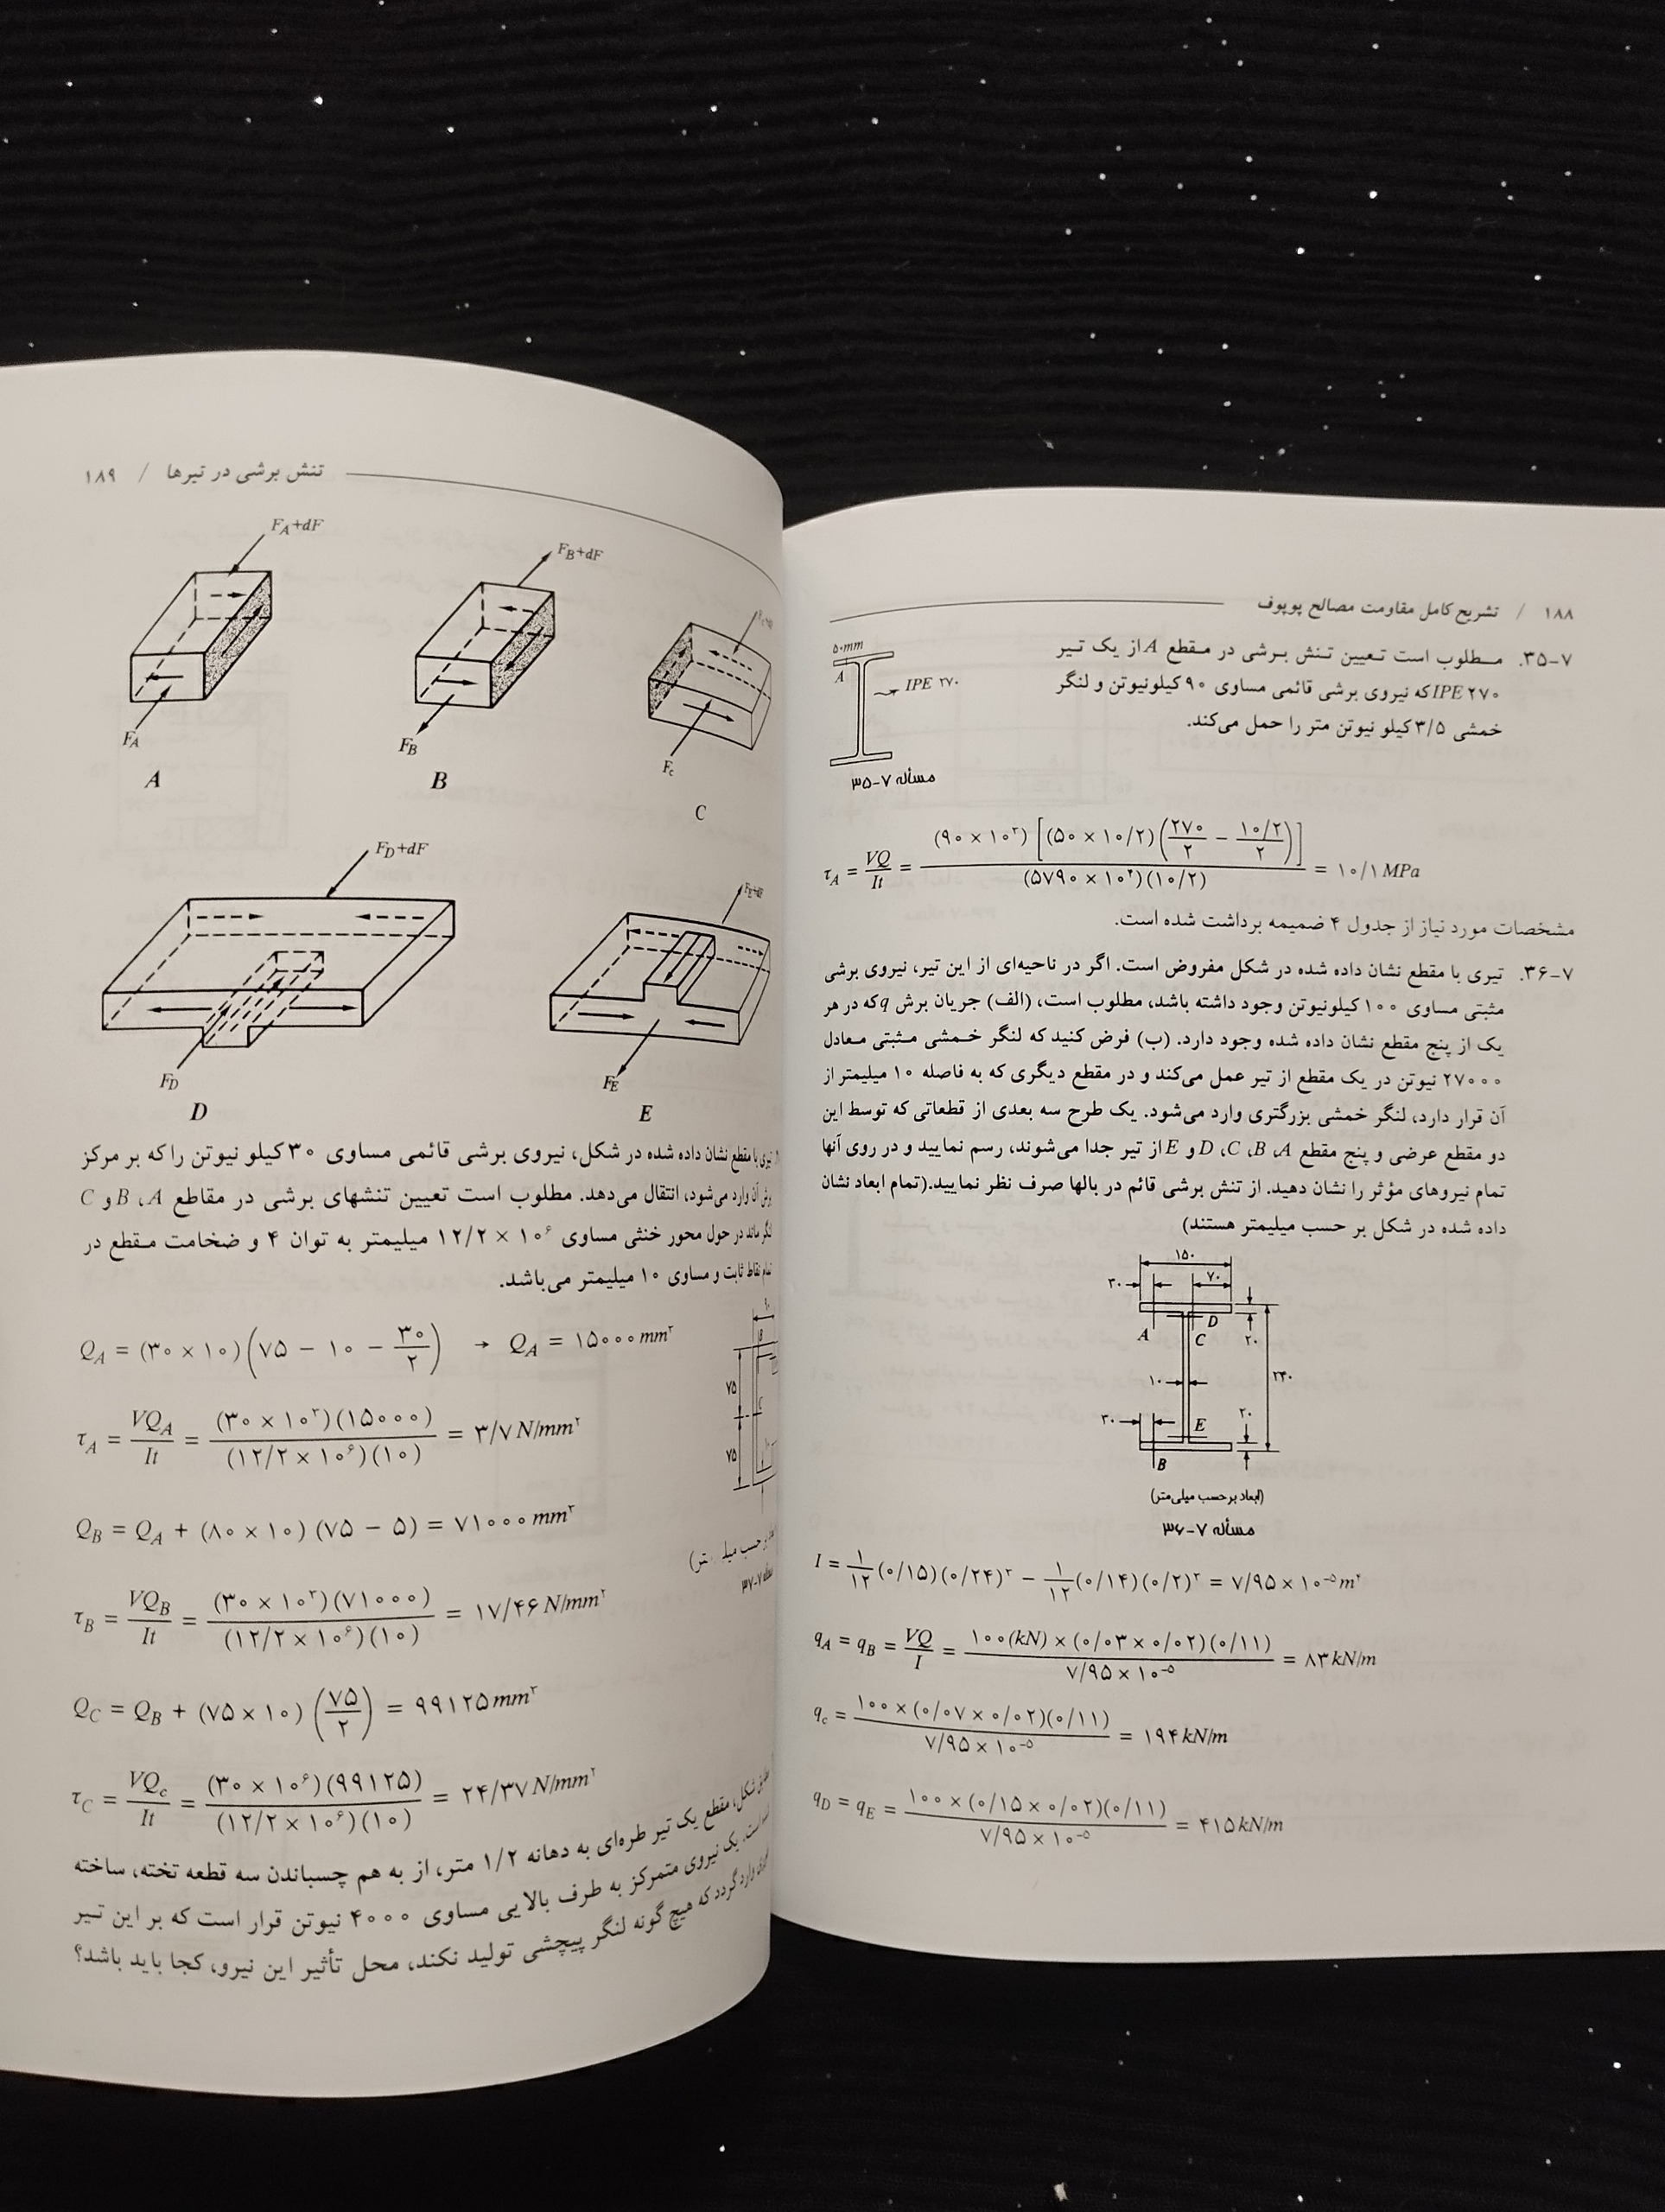 ۱۸۸ / تشریح کامل مقاومت مصالح پوپوف
۳۵-۷. مطلوب است تعیین تنش برشی در مقطع A از یک تیر
IPE ۲۷۰ که نیروی برشی قائمی مساوی ۹۰ کیلونیوتن و لنگر
خمشی ۳/۵ کیلو نیوتن متر را حمل می‌کند.
۵۰mm
A
IPE ۲۷۰
مسأله ۷-۳۵
τA = VQ/It = (۹۰ × ۱۰^۳)[(۵۰ × ۱۰/۲)(۲۷۰/۲ − ۱۰/۲/۲)] / (۵۷۹۰ × ۱۰^۴)(۱۰/۲) = ۱۰/۱ MPa
مشخصات مورد نیاز از جدول ۴ ضمیمه برداشت شده است.
۳۶-۷. تیری با مقطع نشان داده شده در شکل مفروض است. اگر در ناحیه‌ای از این تیر، نیروی برشی
مثبتی مساوی ۱۰۰ کیلونیوتن وجود داشته باشد، مطلوب است، (الف) جریان برش q که در هر
یک از پنج مقطع نشان داده شده وجود دارد. (ب) فرض کنید که لنگر خمشی مثبتی معادل
۲۷۰۰۰ نیوتن در یک مقطع از تیر عمل می‌کند و در مقطع دیگری که به فاصله ۱۰ میلیمتر از
آن قرار دارد، لنگر خمشی بزرگتری وارد می‌شود. یک طرح سه بعدی از قطعاتی که توسط این
دو مقطع عرضی و پنج مقطع A، B، C، D و E از تیر جدا می‌شوند، رسم نمایید و در روی آنها
تمام نیروهای مؤثر را نشان دهید. از تنش برشی قائم در بالها صرف نظر نمایید.(تمام ابعاد نشان
داده شده در شکل بر حسب میلیمتر هستند)
۱۵۰
۳۰
۷۰
A
C
D
۲۰
۱۰
۲۴۰
۳۰
E
۲۰
B
(ابعاد بر حسب میلی‌متر)
مسأله ۷-۳۶
I = ۱/۱۲ (۰/۱۵)(۰/۲۴)^۳ − ۱/۱۲ (۰/۱۴)(۰/۲)^۳ = ۷/۹۵ × ۱۰^−۵ m^۴
qA = qB = VQ/I = ۱۰۰(kN) × (۰/۰۳ × ۰/۰۲)(۰/۱۱) / ۷/۹۵ × ۱۰^−۵ = ۸۳ kN/m
qc = ۱۰۰ × (۰/۰۷ × ۰/۰۲)(۰/۱۱) / ۷/۹۵ × ۱۰^−۵ = ۱۹۴ kN/m
qD = qE = ۱۰۰ × (۰/۱۵ × ۰/۰۲)(۰/۱۱) / ۷/۹۵ × ۱۰^−۵ = ۴۱۵ kN/m
تنش برشی در تیرها / ۱۸۹
FA+dF
FA
A
FB+dF
FB
B
Fc
C
FD+dF
FD
D
FE
E
تیری با مقطع نشان داده شده در شکل، نیروی برشی قائمی مساوی ۳۰ کیلو نیوتن را که بر مرکز
برش آن وارد می‌شود، انتقال می‌دهد. مطلوب است تعیین تنشهای برشی در مقاطع A، B و C
لنگر ماند در حول محور خنثی مساوی ۱۲/۲ × ۱۰^۶ میلیمتر به توان ۴ و ضخامت مقطع در
تمام نقاط ثابت و مساوی ۱۰ میلیمتر می‌باشد.
B
۷۵
C
۷۵
حسب میلی‌متر)
۷-۳۷
QA = (۳۰ × ۱۰)(۷۵ − ۱۰ − ۳۰/۲) → QA = ۱۵۰۰۰ mm^۳
τA = VQA/It = (۳۰ × ۱۰^۳)(۱۵۰۰۰) / (۱۲/۲ × ۱۰^۶)(۱۰) = ۳/۷ N/mm^۲
QB = QA + (۸۰ × ۱۰) (۷۵ − ۵) = ۷۱۰۰۰ mm^۳
τB = VQB/It = (۳۰ × ۱۰^۳)(۷۱۰۰۰) / (۱۲/۲ × ۱۰^۶)(۱۰) = ۱۷/۴۶ N/mm^۲
QC = QB + (۷۵ × ۱۰) (۷۵/۲) = ۹۹۱۲۵ mm^۳
τC = VQc/It = (۳۰ × ۱۰^۶)(۹۹۱۲۵) / (۱۲/۲ × ۱۰^۶)(۱۰) = ۲۴/۳۷ N/mm^۲
شکل، مقطع یک تیر طره‌ای به دهانه ۱/۲ متر، از به هم چسباندن سه قطعه تخته، ساخته
است. یک نیروی متمرکز به طرف بالایی مساوی ۴۰۰۰ نیوتن قرار است که بر این تیر
وارد گردد که هیچ گونه لنگر پیچشی تولید نکند، محل تأثیر این نیرو، کجا باید باشد؟